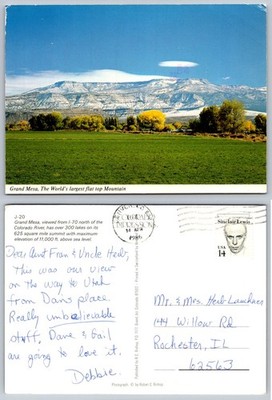 Grand Mesa, The World's largest flat top Mountain
J-20
Grand Mesa, viewed from I-70 north of the
Colorado River, has over 200 lakes on its
625 square mile summit with maximum
elevation of 11,000 ft. above sea level.
Dear Aunt Fran & Uncle Herb,
This was our view
on the way to Utah
from Dan's place.
Really unbelievable
stuff, Dave & Gail
are going to love it.
Debbie.
Sinclair Lewis
USA
14¢
Mr. & Mrs. Herb
144 Willow Rd
Rochester, IL
62563